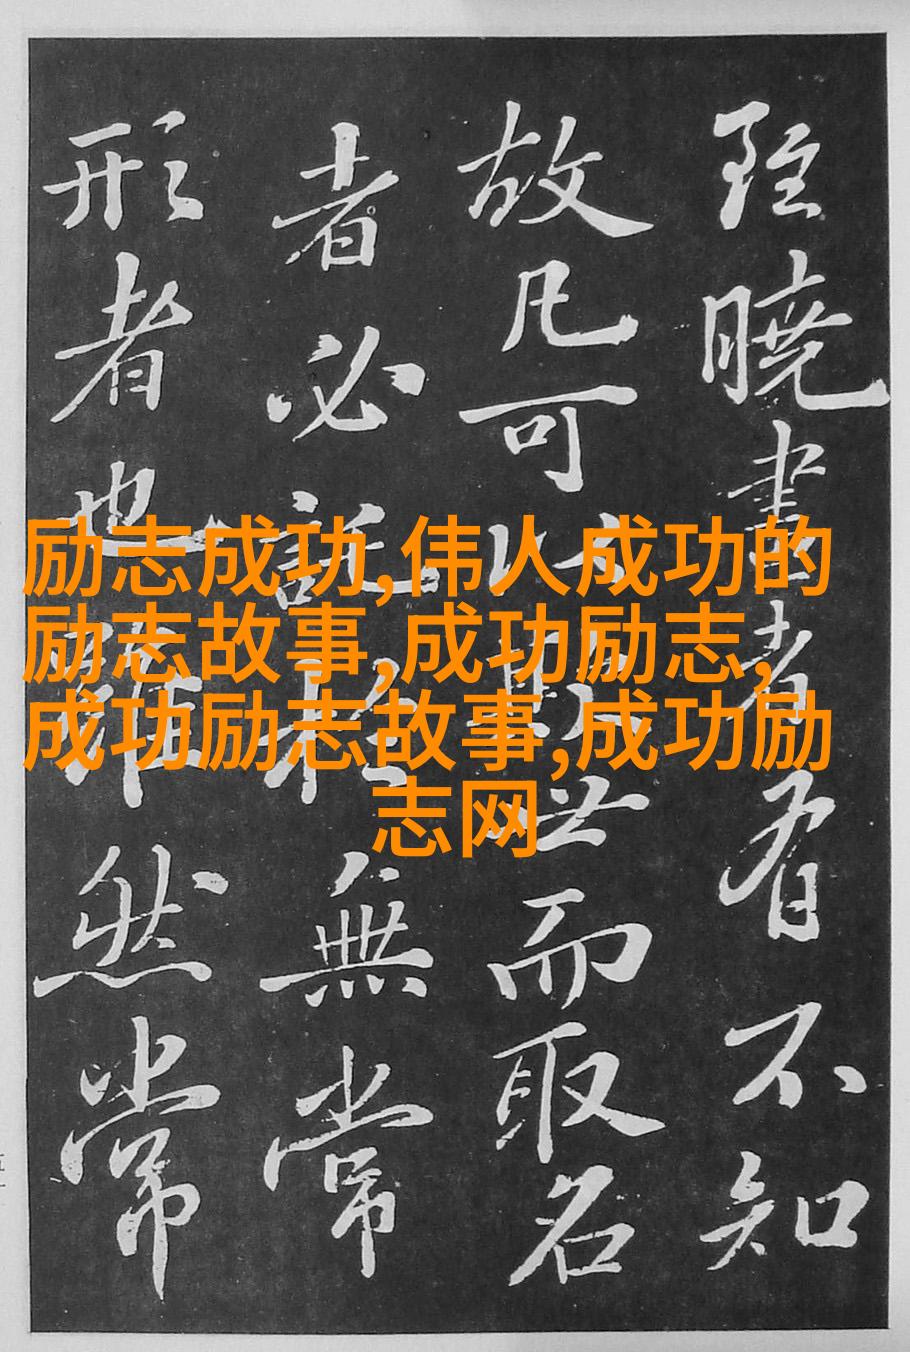 雖曉畫者有不知
故凡可以欺世而取名
者必託於無常
形者也雖然常
励志成功,伟人成功的
励志故事,成功励志,
成功励志故事,成功励
志网